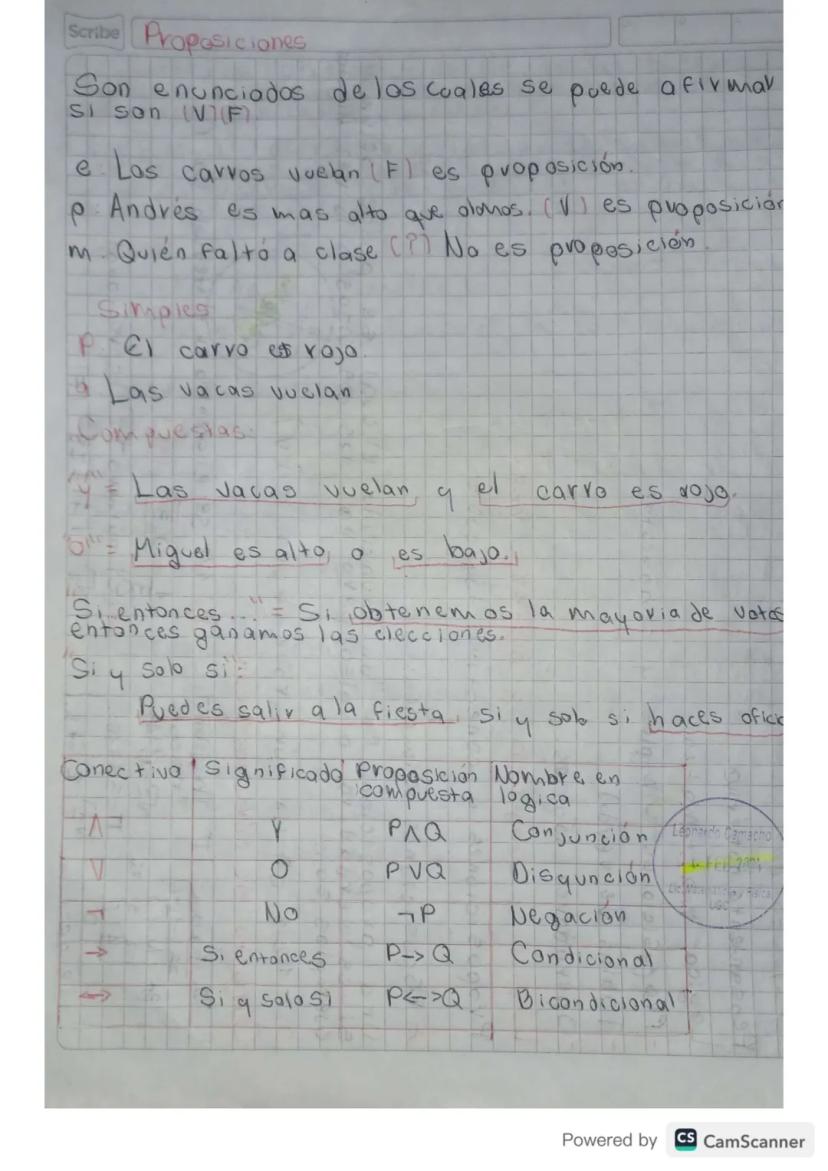 Scribe
Proposiciones
Son enunciados de los cuales se puede afirmar
si son (V)(F)
e. Los carros vuelan (F) es proposición.
p. Andrés es mas alto que olomos. (V) es proposición
m. Quién faltó a clase (?) No es proposición.
Simples
P. El carro es rojo.
q Las vacas vuelan
Compuestas:
"y" = Las vacas vuelan y el carro es rojo.
"O" = Miguel es alto, o es bajo.
Si entonces..." = Si obtenemos la mayoria de votos
entonces ganamos las elecciones.
"Si y solo si":
Puedes salir a la fiesta, si y solo si haces ofici
Conectivo Significado Proposición Nombre en
compuesta lógica
∧ Y P∧Q Conjunción
∨ O P∨Q Disyunción
¬ No ¬P Negación
→ Si entonces P->Q Condicional
↔ Si y solo si P<->Q Bicondicional
Leonardo Camacho
UGC
Powered by CS CamScanner